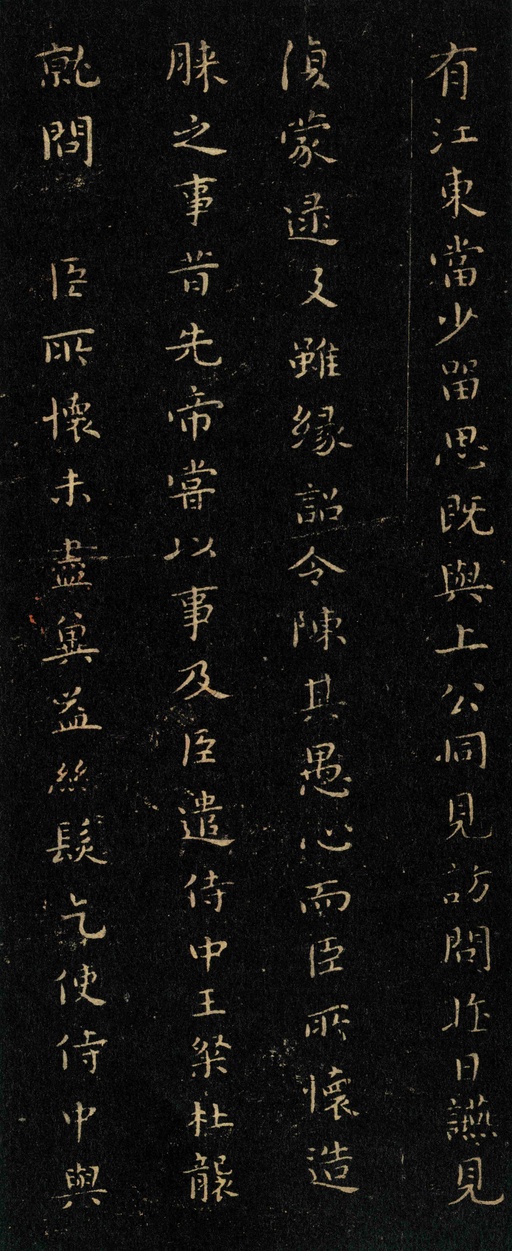 有江東當少留思既與上公同見訪問昨日讌見
須蒙逮及雖緣詔令陳其愚心而臣所懷造
膝之事昔先帝嘗以事及臣遣侍中王粲杜襲
就問 臣所懷未盡冀益絲髮乞使侍中與